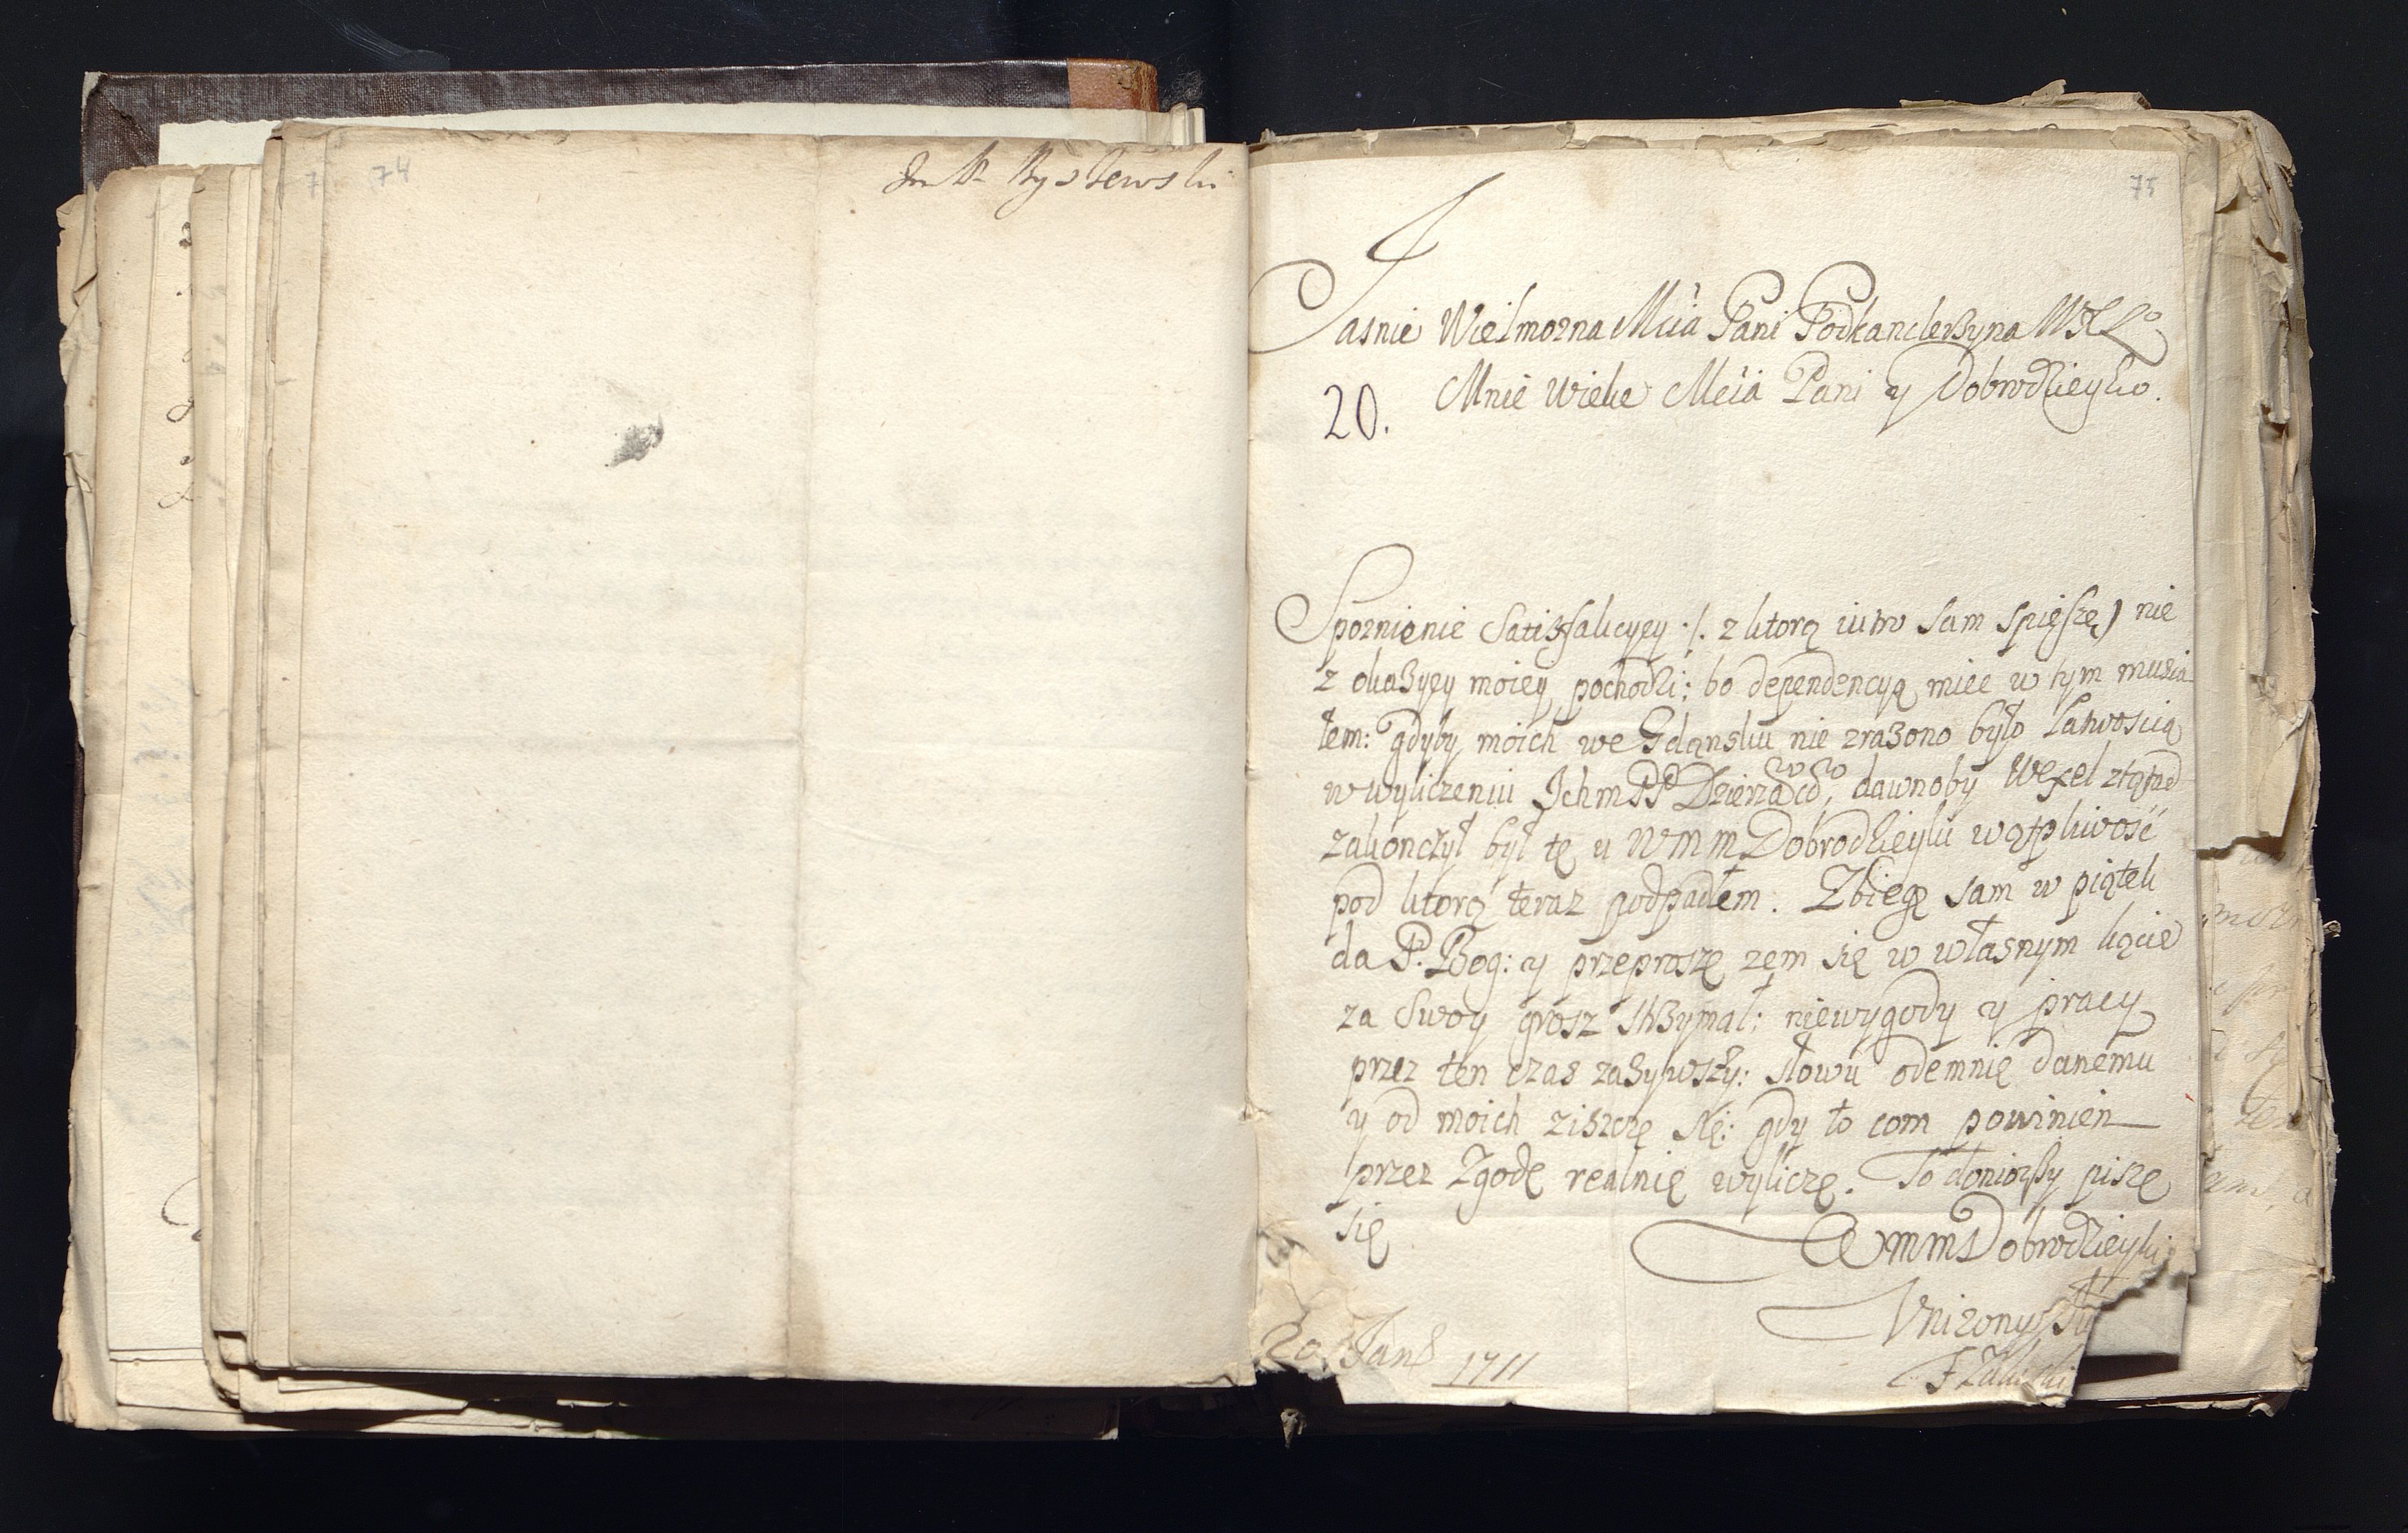 74
75
Jasnie Wielmozna Mcia Pani Podkanclerzyna WXLo
Mnie Wielce Mcia Pani y Dobrodzieyko.
20.
Spoznienie Satisfakcyey ./. z ktorą iutro sam spięszę) nie
z okazyey moiey pochodzi; bo dependencyą miec w tym musia
łem: gdyby moich we Gdansku nie zrazono było łatwoscią
w wyliczeniu Ichm PP Dzierzawców, dawnoby Wexel ztąd
zakonczył był tę u WMM Dobrodzieyki wątpliwość
pod ktorą teraz podpadłem. Zbiegę sam w piątek
da P. Bog: y przeproszę zem się w własnym kącie
za swoy grosz trzymał; niewygody y pracy
przez ten czas zazywszy: słowu odemnię danemu
y od moich ziszczę się: gdy to com powinien
przez Zgodę realnię wyliczę. To doniozszy piszę
się
WMM Dobrodzieyki
Vnizony
F Załuski
20 Jan 1711